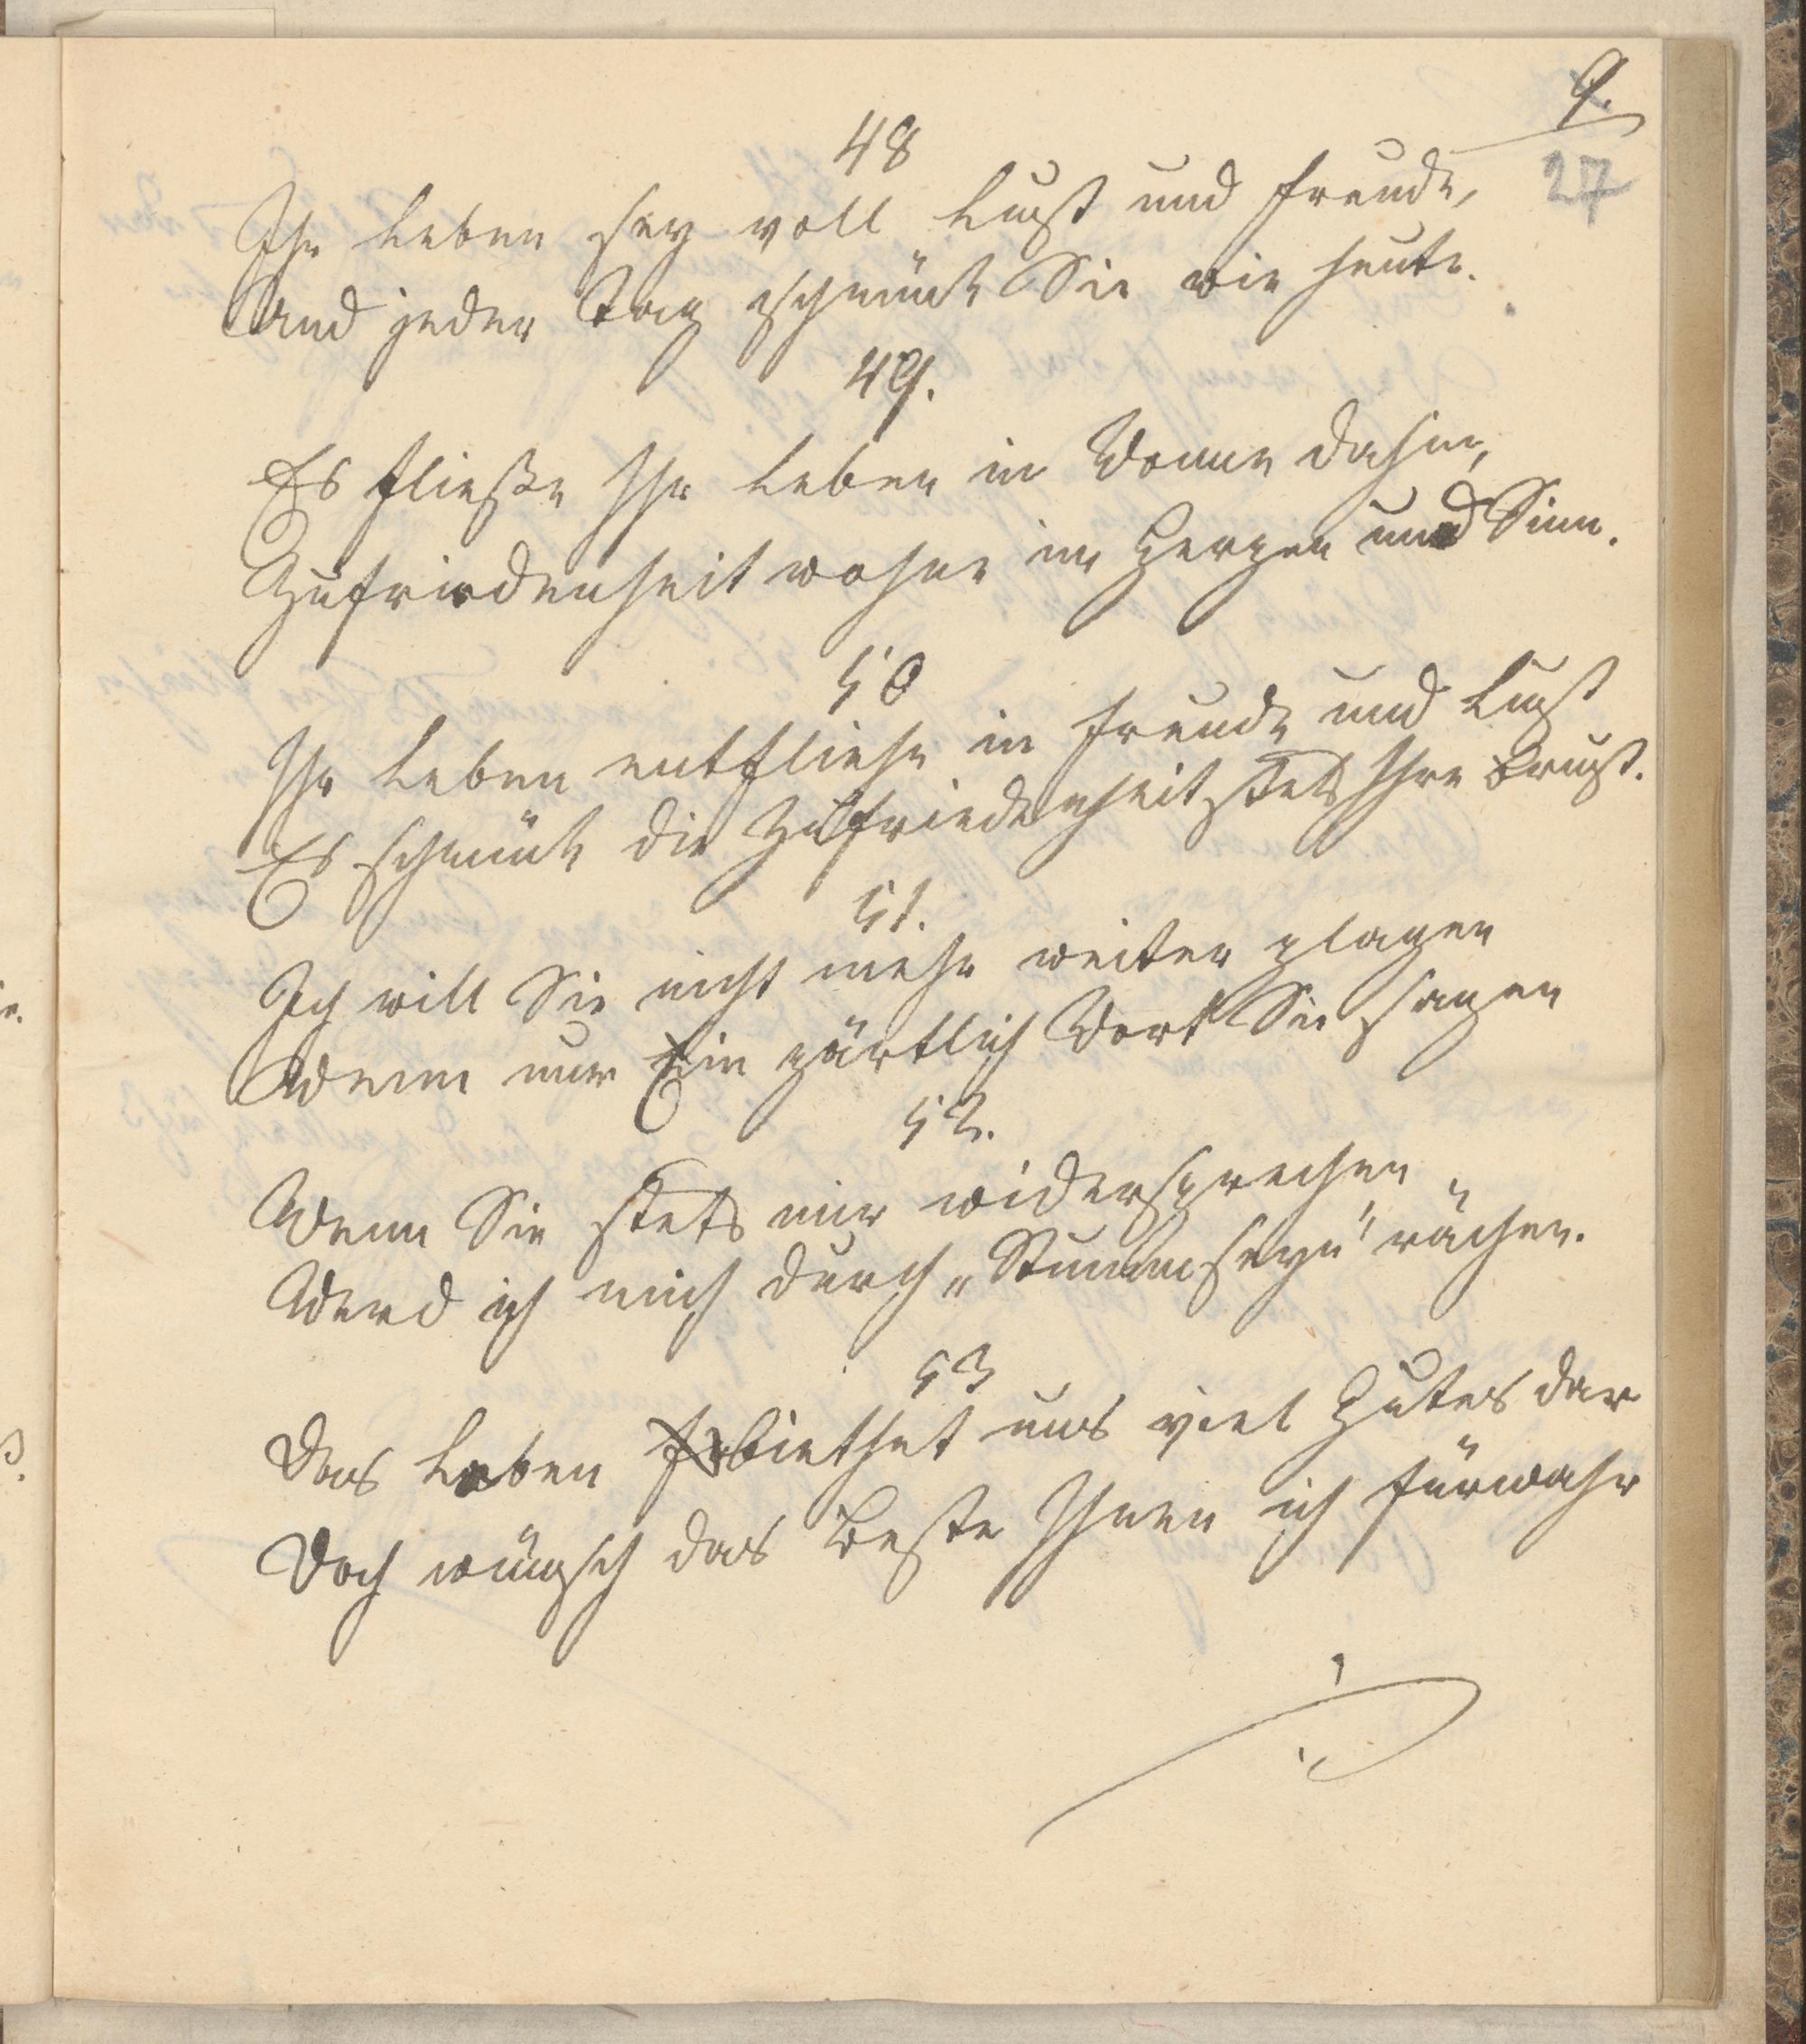 9.
27
48
Ihr Leben sey voll Lust und Freude,
Und jeder Tag schmück Sie wie heute.
49.
Es fließe Ihr Leben in Wonne dahin,
Zufriedenheit wohne im Herzen und Sinn.
50
Ihr Leben entfliehe in Freude und Lust
Es schmück die Zufriedenheit stets Ihre Brust.
51.
Ich will Sie nicht mehr weiter plagen
Wenn nur Ein zärtlich Wort Sie sagen
52.
Wenn Sie stets mir widersprechen
Werd ich mich durch „Stummseyn" rächen.
53
Das Leben biethet uns viel Gutes dar
Doch wünsch das Beste Ihnen ich fürwahr